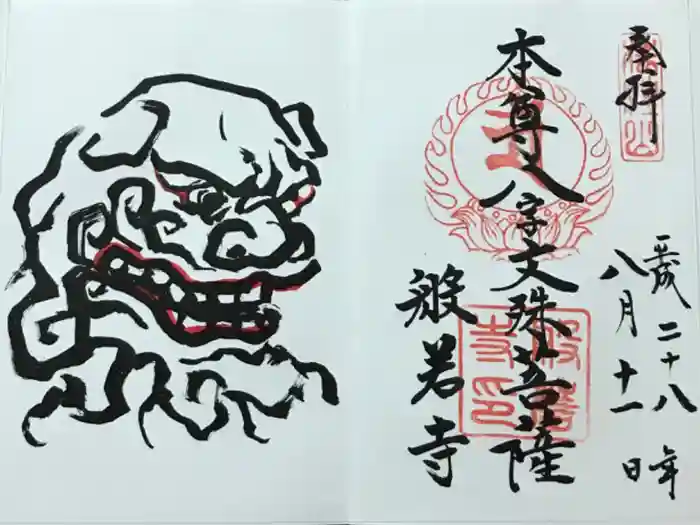 奉拝
平成二十八年
八月十一日
本尊八字文殊菩薩
般若寺
般若寺印